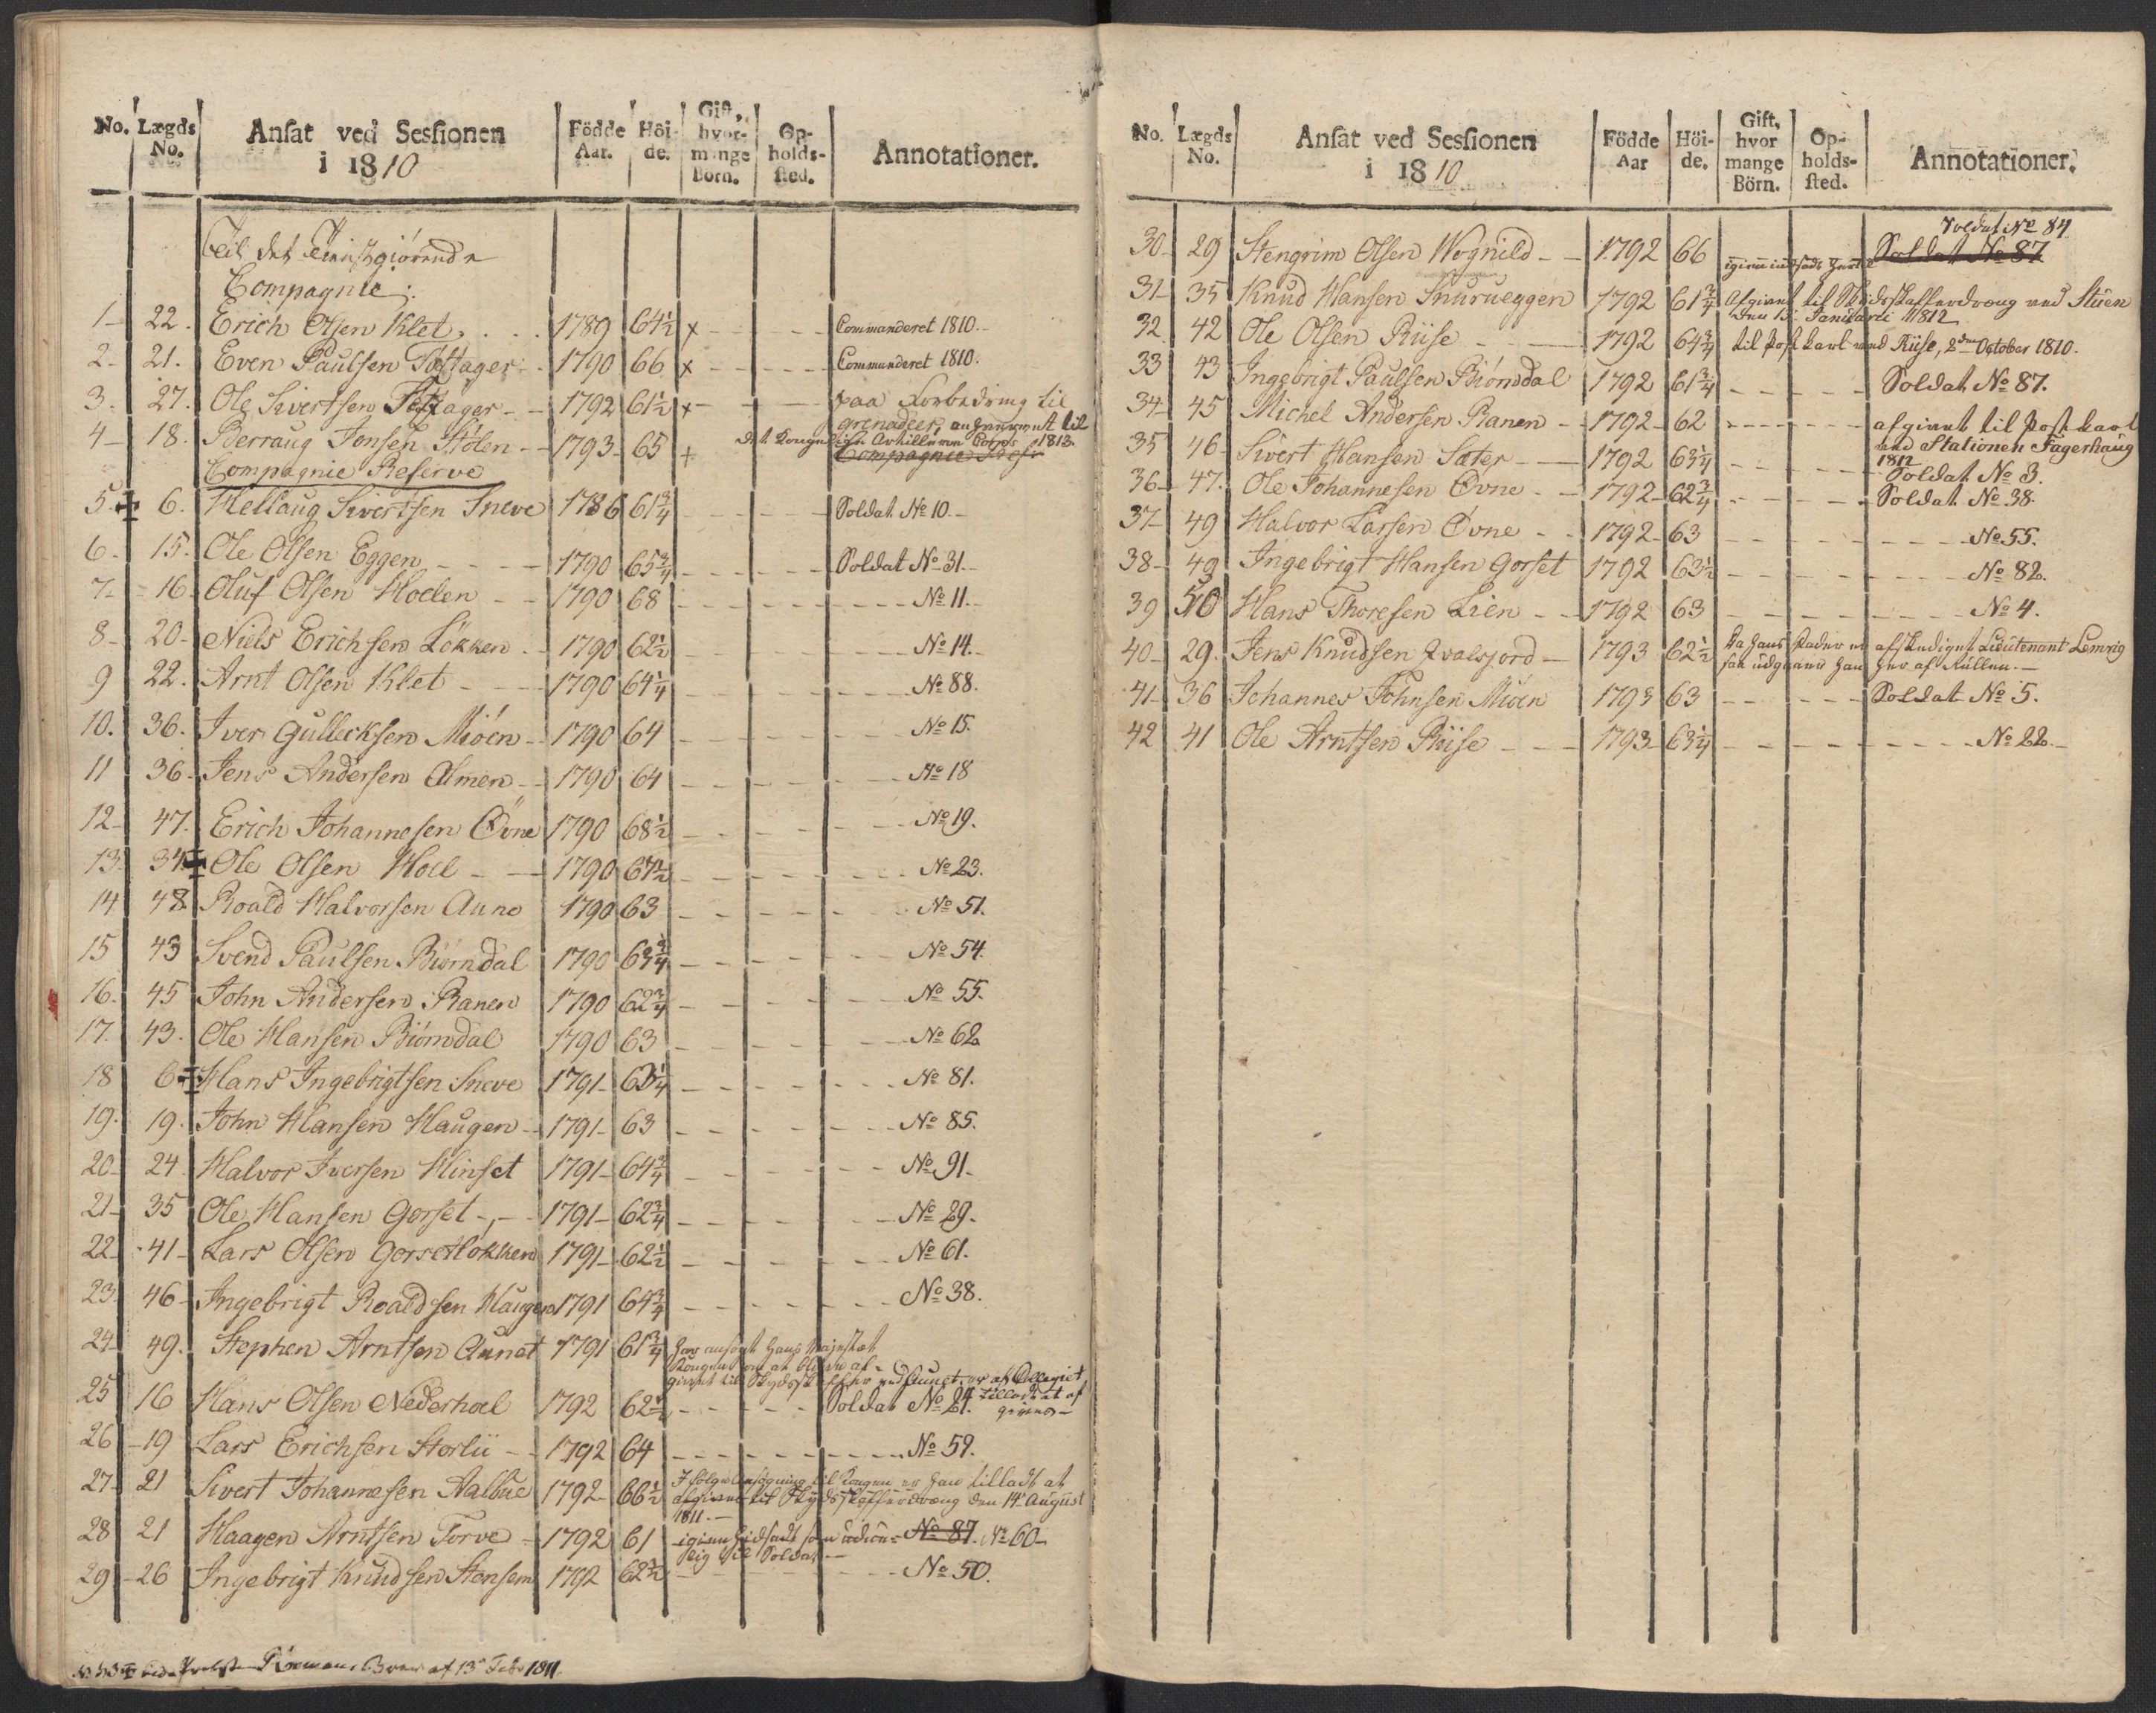 No. Lægds No. Ansat ved Sessionen i 1810 Födde Aar. Höide. Gift, hvormange Börn. Opholdssted. Annotationer.
Til det
Compagnie.
1 22. Erich Olsen Klet 1789 64½ x Commanderet 1810.
2 21. Even Paulsen 1790 66 x Commanderet 1810.
3. 27. Ole Sivertsen 1792 61½ x paa Forbedring til
Grenadeer, til
4 18. Berraug Jonsen Stölen 1793 65 + Artillerie Corps 1813
Compagnie Reserve
5 6. Hellaug Sivertsen Sneve 1786 61¾ Soldat No 10.
6 15. Ole Olsen Eggen 1790 65¾ Soldat No 31.
7 16. Oluf Olsen Hoelen 1790 68 No 11.
8 20 Niels Erichsen Lökken 1790 62½ No 14.
9 22. Arnt Olsen Klet 1790 64¼ No 88.
10. 36. Iver Gullecksen Miöen 1790 64 No 15.
11 36 Jens Andersen Almen 1790 64 No 18
12 47. Erich Johannesen Övne 1790 68½ No 19.
13. 34 Ole Olsen Hoel 1790 67½ No 23.
14 48 Roald Halvorsen Aune 1790 63 No 51.
15 43 Svend Paulsen Biörndal 1790 63¾ No 54.
16. 45 John Andersen Ranen 1790 62¾ No 55.
17. 43. Ole Hansen Biörndal 1790 63 No 62
18 6 Hans Ingebrigtsen Sneve 1791 63¼ No 81.
19. 19. John Hansen Haugen 1791 63 No 85.
20 24 Halvor Iversen Hinset 1791 64¾ No 91
21 35 Ole Hansen Gorset 1791 62¾ No 29.
22 41 Lars Olsen Gorsetlökken 1791 62½ No 61.
23 46 Ingebrigt Roaldsen Haugen 1791 64¾ No 38.
24 49. Stephen Arntsen Aunet 1791 61¾ Hans Majestæt
Kongen om at blive af-
givet til ved Aunet, er af Collegiet
25 16 Hans Olsen Nederhoel 1792 62½ Soldat No 24. tilladt at af
gives
26 19 Lars Erichsen Storlii 1792 64 No 59.
27 21 Sivert Johannesen Aalbue 1792 66½ I fölge Ansögning til Kongen er han tilladt at
afgives til Skydsskafferdræng den 14 August
1811.
28 21 Haagen Arntsen Torve 1792 61 igien indsadt som No 87. No 60
lig til Soldat
29 26 Ingebrigt Knudsen Stensem 1792 62½ No 50.
af 13 Febr 1811.
No. Lægds No. Ansat ved Sessionen i 1810 Födde Aar Höide. Gift, hvor mange Börn. Opholdssted. Annotationer.
Soldat No 84
30 29 Stengrim Olsen Wognild 1792 66 igien indsadt Soldat No 87
31 35 Knud Hansen Snurueggen 1792 61¾ Afgivet til Skydsskafferdræng ved Stuen
den 13 Januarii 1812
32. 42 Ole Olsen Riise 1792 64¾ til Postkarl ved Riise, 2den October 1810.
33 43 Ingebrigt Paulsen Biörndal 1792 61¾ Soldat No 87.
34 45 Michel Andersen Ranen 1792 62 afgivet til Postkarl
ved Stationen Fagerhaug
1812
35 46 Sivert Hansen Sæter 1792 63¼ Soldat No 3.
36 47. Ole Johannesen Övne 1792 62¾ Soldat No 38.
37 49 Halvor Larsen Övne 1792 63 No 55.
38 49 Ingebrigt Hansen Gorset 1792 63½ No 82.
39 50 Hans Thoresen Lien 1792 63 No 4.
40 29. Jens Knudsen Qvalsjord 1793 62½ Da hans Fader er afskediget Lieutenant Lemvig
saa udgaaer han her af Rullen.
41 36 Johannes Johnsen Miöen 1793 63 Soldat No 5.
42 41 Ole Arntsen Riise 1793 63¼ No 22.